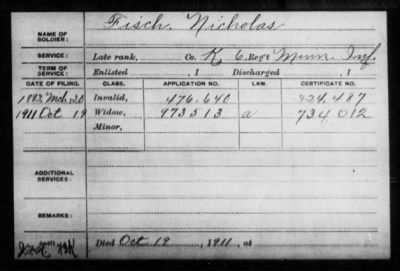 NAME OF SOLDIER: Fisch, Nicholas
SERVICE: Late rank, Co. K, 6 Reg't Minn. Inf.
TERM OF SERVICE: Enlisted , 1 Discharged , 1
DATE OF FILING. CLASS. APPLICATION NO. LAW. CERTIFICATE NO.
1883 Mch 20 Invalid, 476.640 487
1911 Oct 19 Widow, 973513 a 734012
Minor,
ADDITIONAL SERVICES:
REMARKS:
Died Oct 19, 1911, at